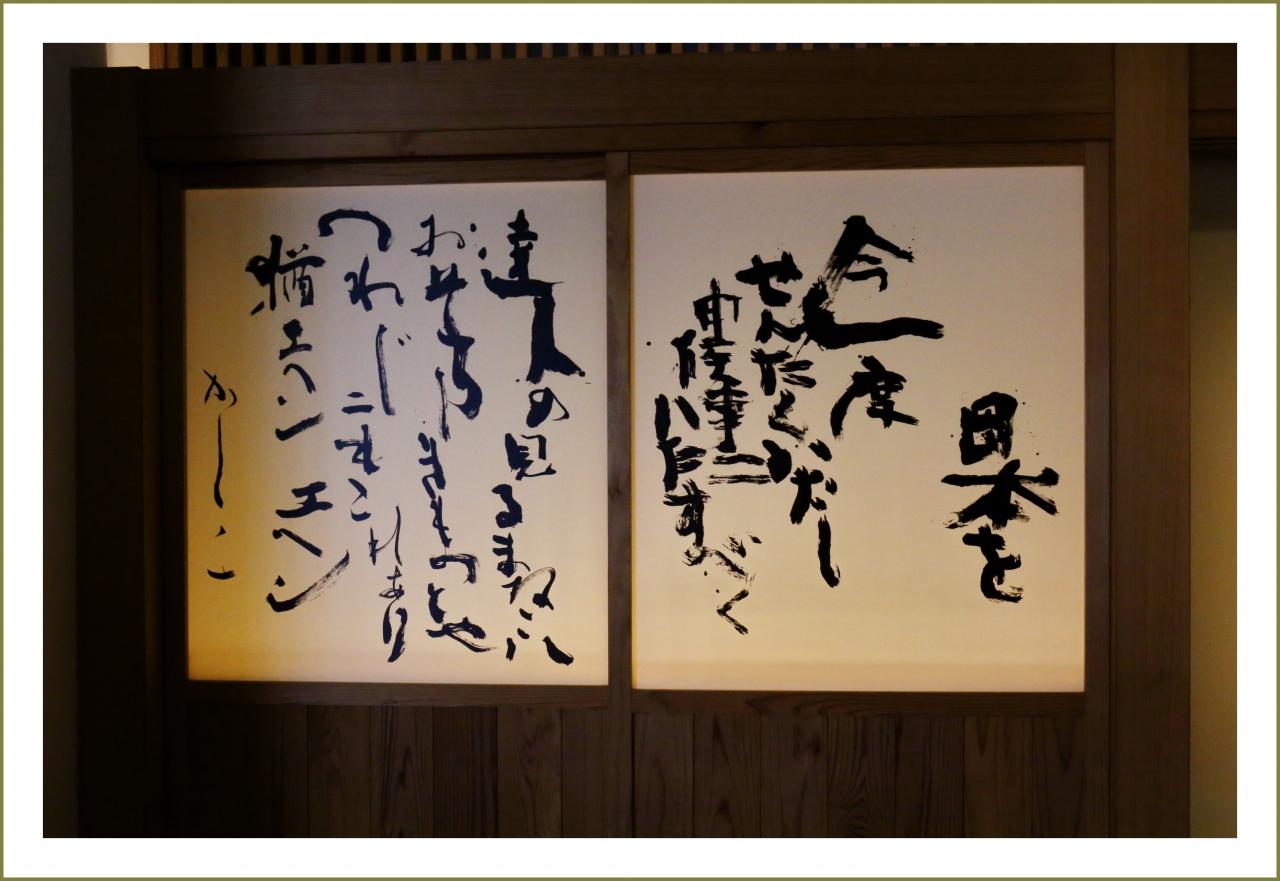 日本を
今一度
せんたくいたし
申候事ニ
いたすべく
達人の見るまなこハ
おそろしきものとや
つれ〴〵ニもこれあり
猶エヘンエヘン
かしこ